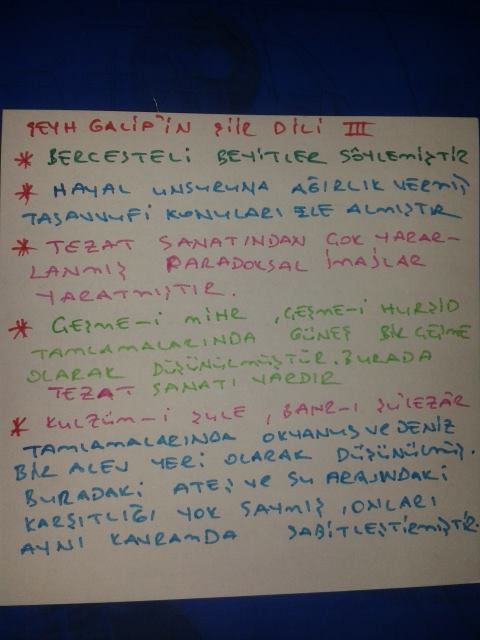 ŞEYH GALİP'İN ŞİİR DİLİ III
* BERCESTELİ BEYİTLER SÖYLEMİŞTİR
* HAYAL UNSURUNA AĞIRLIK VERMİŞ
TASAVVUFİ KONULARI ELE ALMIŞTIR
* TEZAT SANATINDAN ÇOK YARAR-
LANMIŞ PARADOKSAL İMAJLAR
YARATMIŞTIR.
* ÇEŞME-İ MİHR, ÇEŞME-İ HURŞİD
TAMLAMALARINDA GÜNEŞ BİR ÇEŞME
OLARAK DÜŞÜNÜLMÜŞTÜR. BURADA
TEZAT SANATI VARDIR
* KULZÜM-İ ŞULE, BAHR-I ŞÛLEZÂR
TAMLAMALARINDA OKYANUS VE DENİZ
BİR ALEV YERİ OLARAK DÜŞÜNÜLMÜŞ.
BURADAKİ ATEŞ VE SU ARASINDAKİ
KARŞITLIĞI YOK SAYMIŞ, ONLARI
AYNI KAVRAMDA SABİTLEŞTİRMİŞTİR.